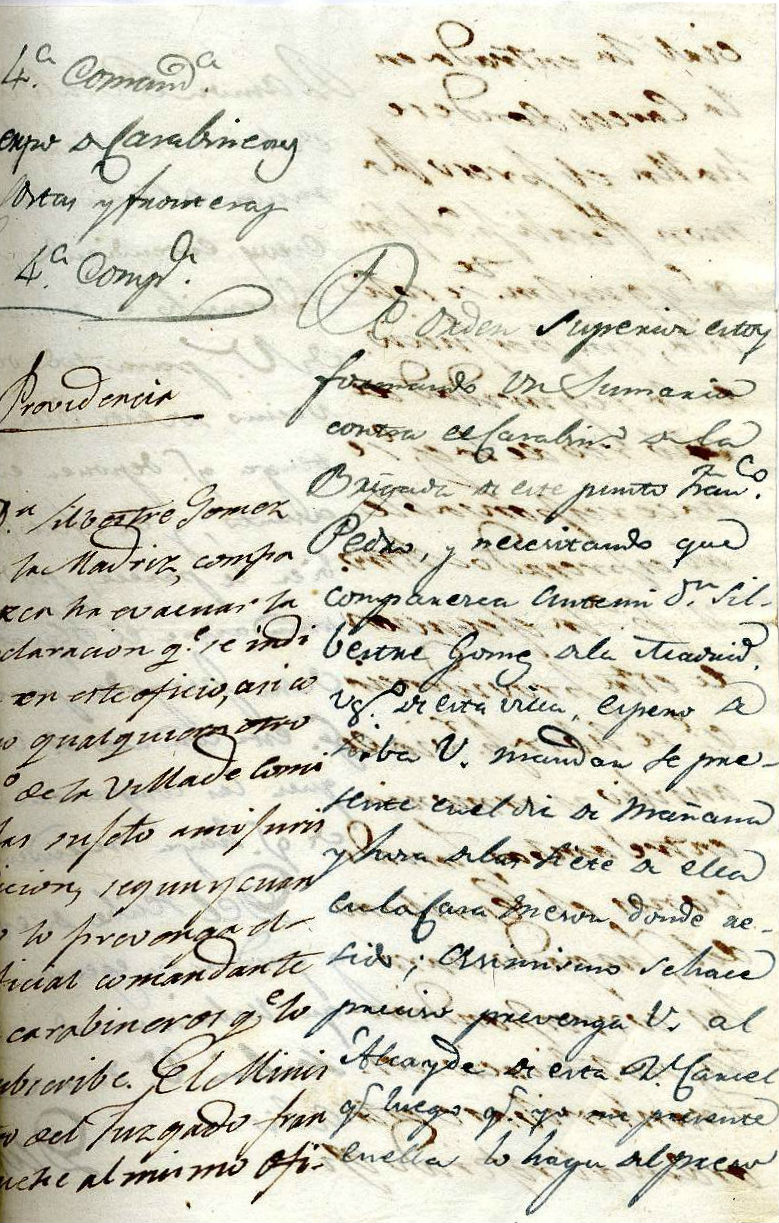 4.ª Comand.ª
Carabineros
Costas y fronteras
4.ª Comp.ª
Providencia
D.n Silvestre Gomez
la Madriz, compa
rezca ha evacuar la
claracion q.e se indi
en este oficio, asi co
qualquiera otro
de la Villa de Comi
llas sujeto a mi juris
icion, segun y cuan
lo prevenga el
ficial comandante
carabineros q.e lo
ubscribe. El Minis
del Juzgado fran
al mismo Ofi-
De orden Superior estoy
formando un Sumario
contra el Carabin.o de la
Brigada de este punto Fran.co
Pedro, y necesitando que
comparezca ante mi D.n Sil-
bestre Gomez de la Madrid,
de esta villa, espero se
sirba V. mandar se pre-
sente en el dia de Mañana
y hora de las siete de ella
en la Casa Meson donde re-
sido; Asimismo se hace
preciso prevenga V. al
Alcayde de esta R.l Carcel
q.e luego q.e yo me presente
en ella lo haga del preso